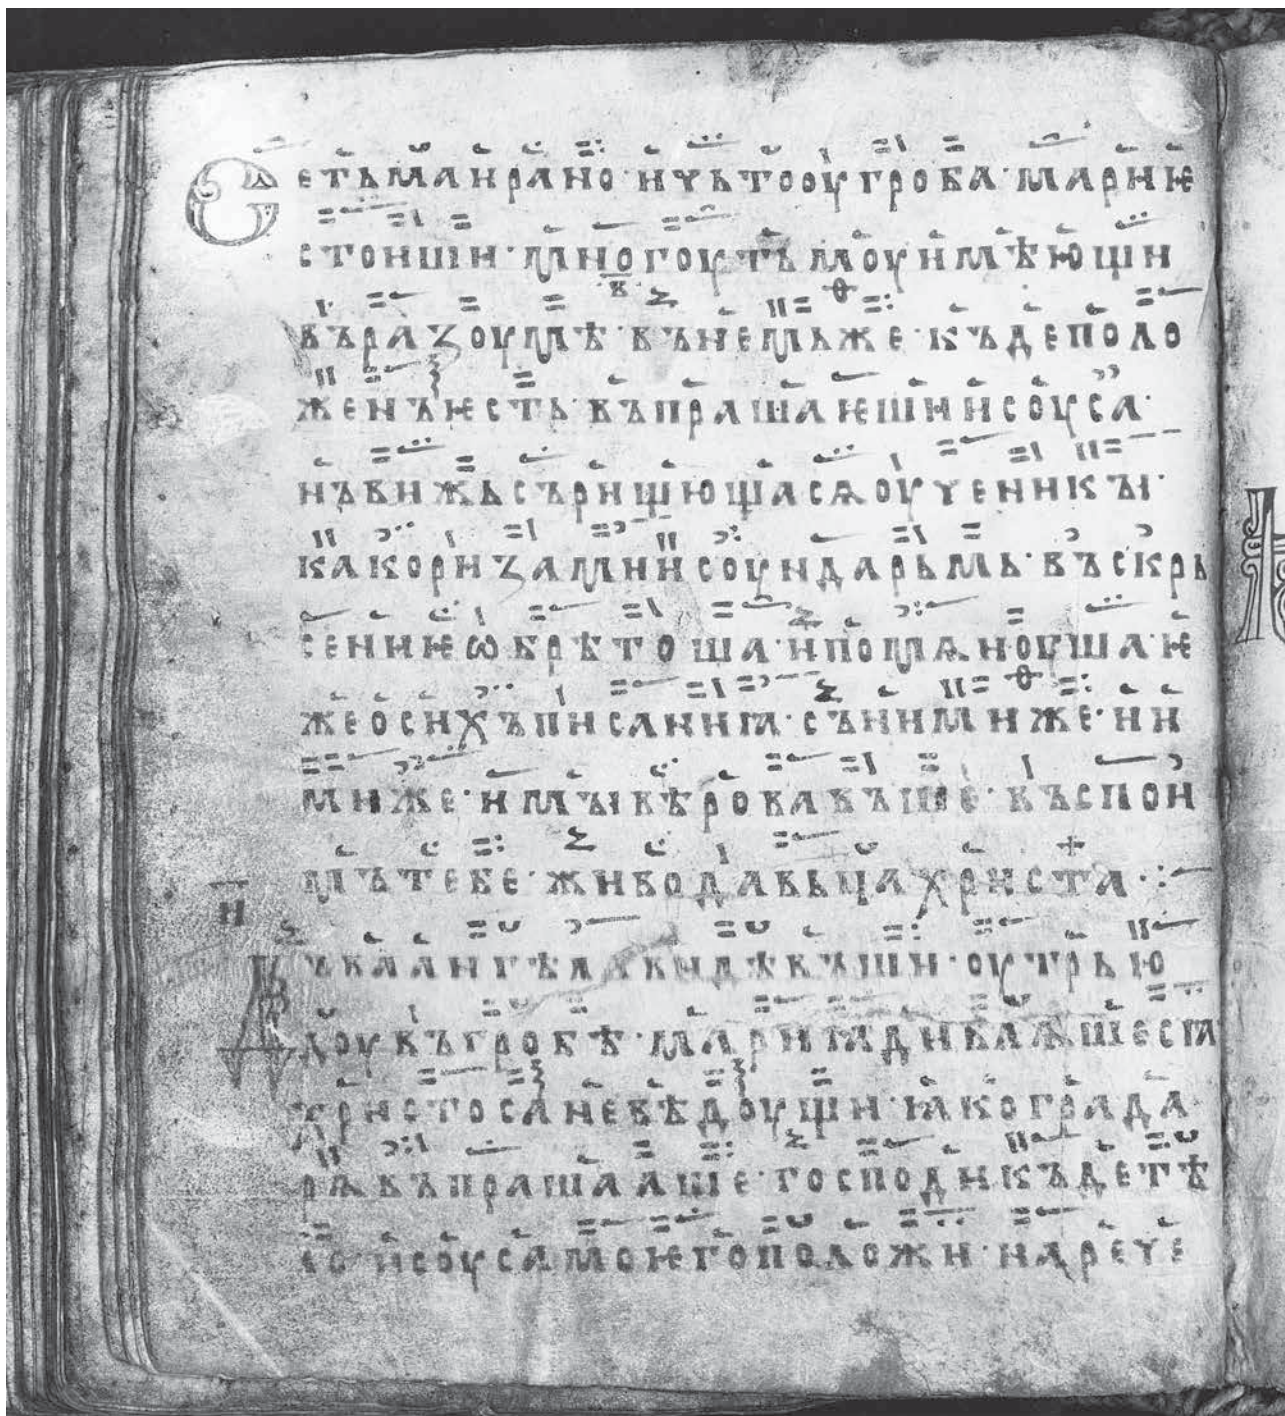 Сетьмаиꙗрано · ичьтооугроба · мариѥ
стоиши · многоутьмоуимѣющи
въразоумѣ · вънемьже · къдеполо
женъѥсть · въпрашаѥшиисоуса ·
нъвижьсърищющасѧоученикꙑ ·
какоризамиисоударьмь · въскрь
сениѥѡбрѣтоша · ипомѧноуша · ѥ
жеосихъписаниꙗ · сънимиже · ни
миже · имꙑвѣровавъше · въспои
мътебе · живодавьцахриста ·
и
Дъваангѣлавидѣвъши · оутрью
доувъгробѣ · мариꙗдивлѧшесꙗ
христосаневѣдоущи · ꙗкоградa
рѧвъпрашааше · господикъдетѣ
ло исоусамоѥгоположи · нарече